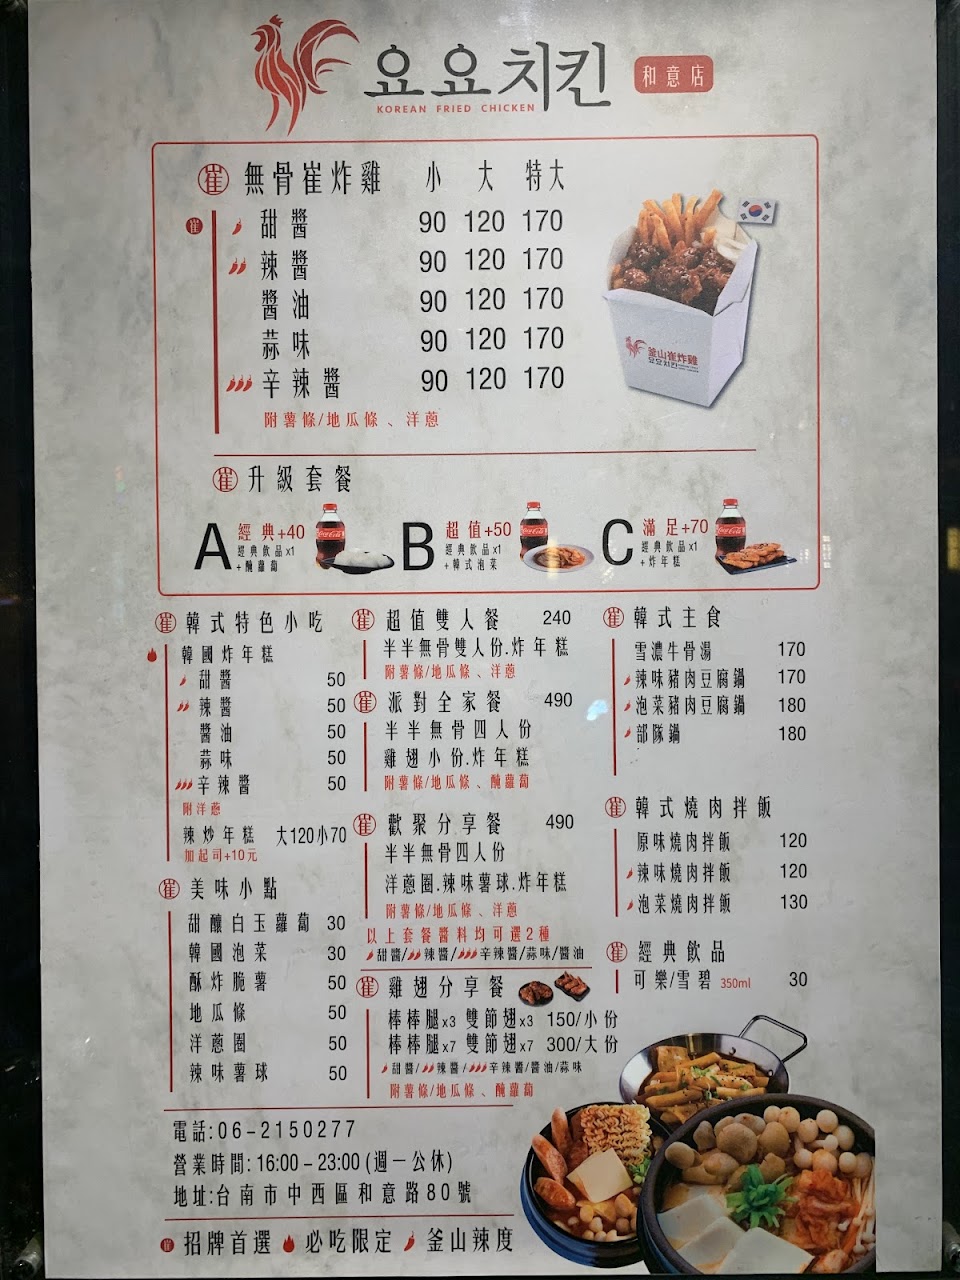 요요치킨 和意店
KOREAN FRIED CHICKEN
崔 無骨崔炸雞 小 大 特大
崔 甜醬 90 120 170
辣醬 90 120 170
醬油 90 120 170
蒜味 90 120 170
辛辣醬 90 120 170
附薯條/地瓜條、洋蔥
釜山崔炸雞
요요치킨
崔 升級套餐
A 經典+40
經典飲品x1
+醃蘿蔔
B 超值+50
經典飲品x1
+韓式泡菜
C 滿足+70
經典飲品x1
+炸年糕
崔 韓式特色小吃
韓國炸年糕
甜醬 50
辣醬 50
醬油 50
蒜味 50
辛辣醬 50
附洋蔥
辣炒年糕 大120小70
加起司+10元
崔 美味小點
甜釀白玉蘿蔔 30
韓國泡菜 30
酥炸脆薯 50
地瓜條 50
洋蔥圈 50
辣味薯球 50
崔 超值雙人餐 240
半半無骨雙人份.炸年糕
附薯條/地瓜條、洋蔥
崔 派對全家餐 490
半半無骨四人份
雞翅小份.炸年糕
附薯條/地瓜條、醃蘿蔔
崔 歡聚分享餐 490
半半無骨四人份
洋蔥圈.辣味薯球.炸年糕
附薯條/地瓜條、洋蔥
以上套餐醬料均可選2種
甜醬/辣醬/辛辣醬/蒜味/醬油
崔 雞翅分享餐
棒棒腿x3 雙節翅x3 150/小份
棒棒腿x7 雙節翅x7 300/大份
甜醬/辣醬/辛辣醬/醬油/蒜味
附薯條/地瓜條、醃蘿蔔
崔 韓式主食
雪濃牛骨湯 170
辣味豬肉豆腐鍋 170
泡菜豬肉豆腐鍋 180
部隊鍋 180
崔 韓式燒肉拌飯
原味燒肉拌飯 120
辣味燒肉拌飯 120
泡菜燒肉拌飯 130
崔 經典飲品
可樂/雪碧 350ml 30
電話:06-2150277
營業時間:16:00－23:00(週一公休)
地址:台南市中西區和意路80號
崔 招牌首選 必吃限定 釜山辣度